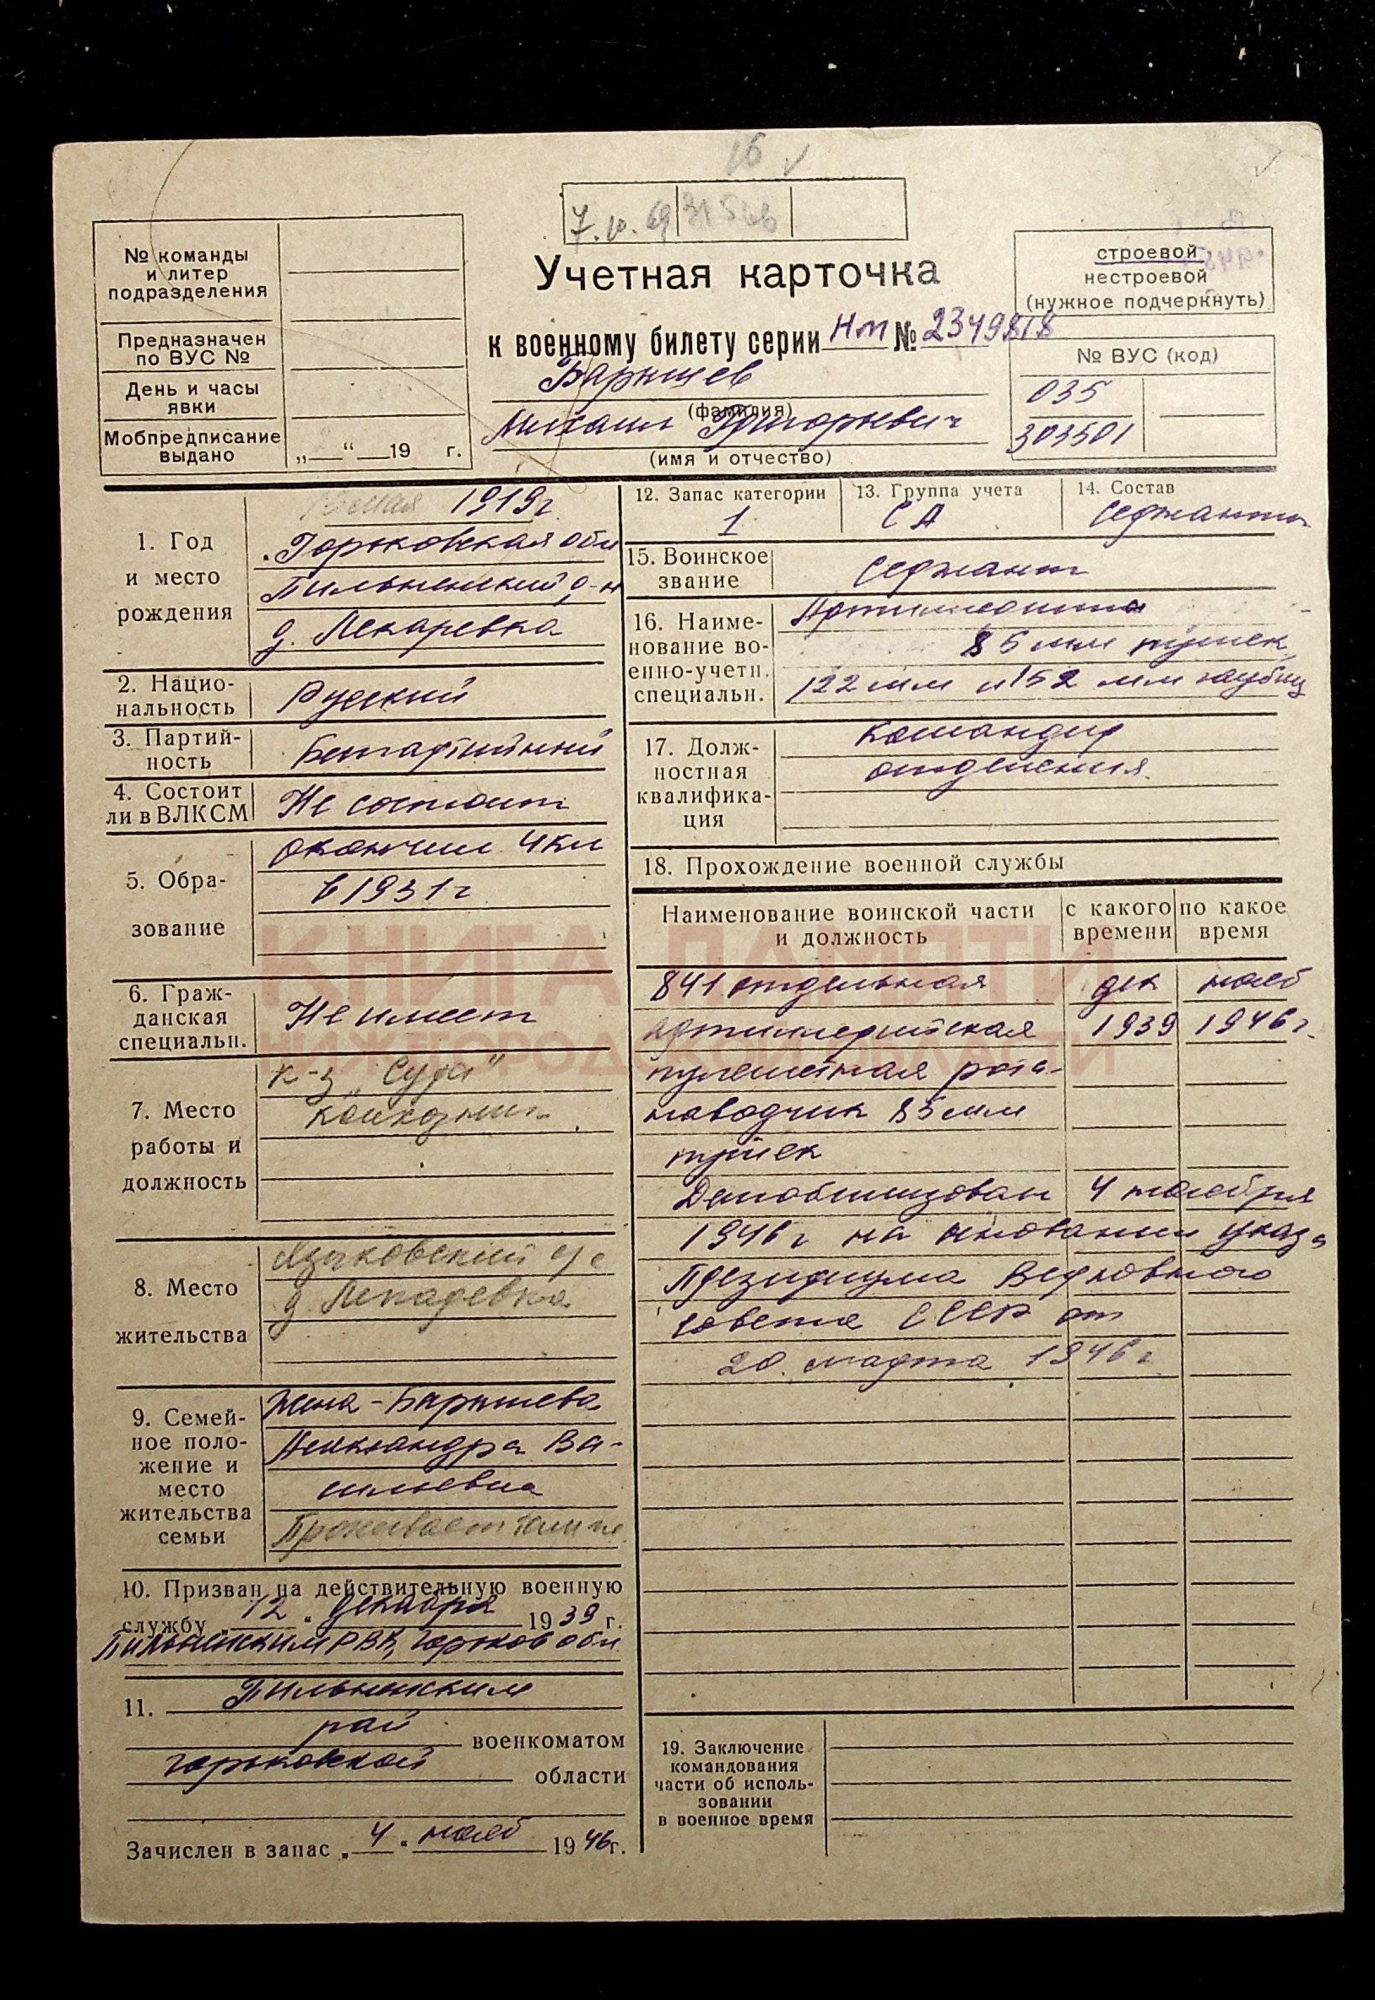 16
7.10.69
№ команды
и литер
подразделения
Предназначен
по ВУС №
День и часы
явки
Мобпредписание
выдано
„ “ 19 г.
Учетная карточка
к военному билету серии НМ № 2349818
Барышев
(фамилия)
Михаил Григорьевич
(имя и отчество)
строевой
нестроевой
(нужное подчеркнуть)
№ ВУС (код)
035
303501
1. Год
и место
рождения
мая 1919г
Горьковская обл
Пильненский р-н
д. Лекаревка
2. Нацио-
нальность
Русский
3. Партий-
ность
Беспартийный
4. Состоит
ли в ВЛКСМ
Не состоит
5. Обра-
зование
окончил 4кл
в 1931г
6. Граж-
данская
специальн.
Не имеет
7. Место
работы и
должность
к-з „Сура“
колхозник
8. Место
жительства
Языковский с/с
д. Лекаревка
9. Семей-
ное поло-
жение и
место
жительства
семьи
Жена - Барышева
Александра Ва-
сильевна
Проживает там же
10. Призван на действительную военную
службу „12“ декабря 1939 г.
Пильненским РВК, Горьков обл
11. Пильненским
рай
военкоматом
горьковской
области
Зачислен в запас „4“ нояб 1946г.
12. Запас категории
1
13. Группа учета
СА
14. Состав
Сержанты
15. Воинское
звание
Сержант
16. Наиме-
нование во-
енно-учетн.
специальн.
Артиллериста
85 мм пушек
122 мм и 152 мм гаубиц
17. Долж-
ностная
квалифика-
ция
Командир
отделения
18. Прохождение военной службы
Наименование воинской части
и должность
с какого
времени
по какое
время
841 отдельная дек нояб
артиллерийская 1939 1946г.
пулеметная рота-
наводчик 85 мм
пушек
Демобилизован 4 ноября
1946г на основании указа
Президиума Верховного
Совета СССР от
20. марта 1946г
19. Заключение
командования
части об исполь-
зовании
в военное время
КНИГА ПАМЯТИ
НИЖЕГОРОДСКОЙ ОБЛАСТИ